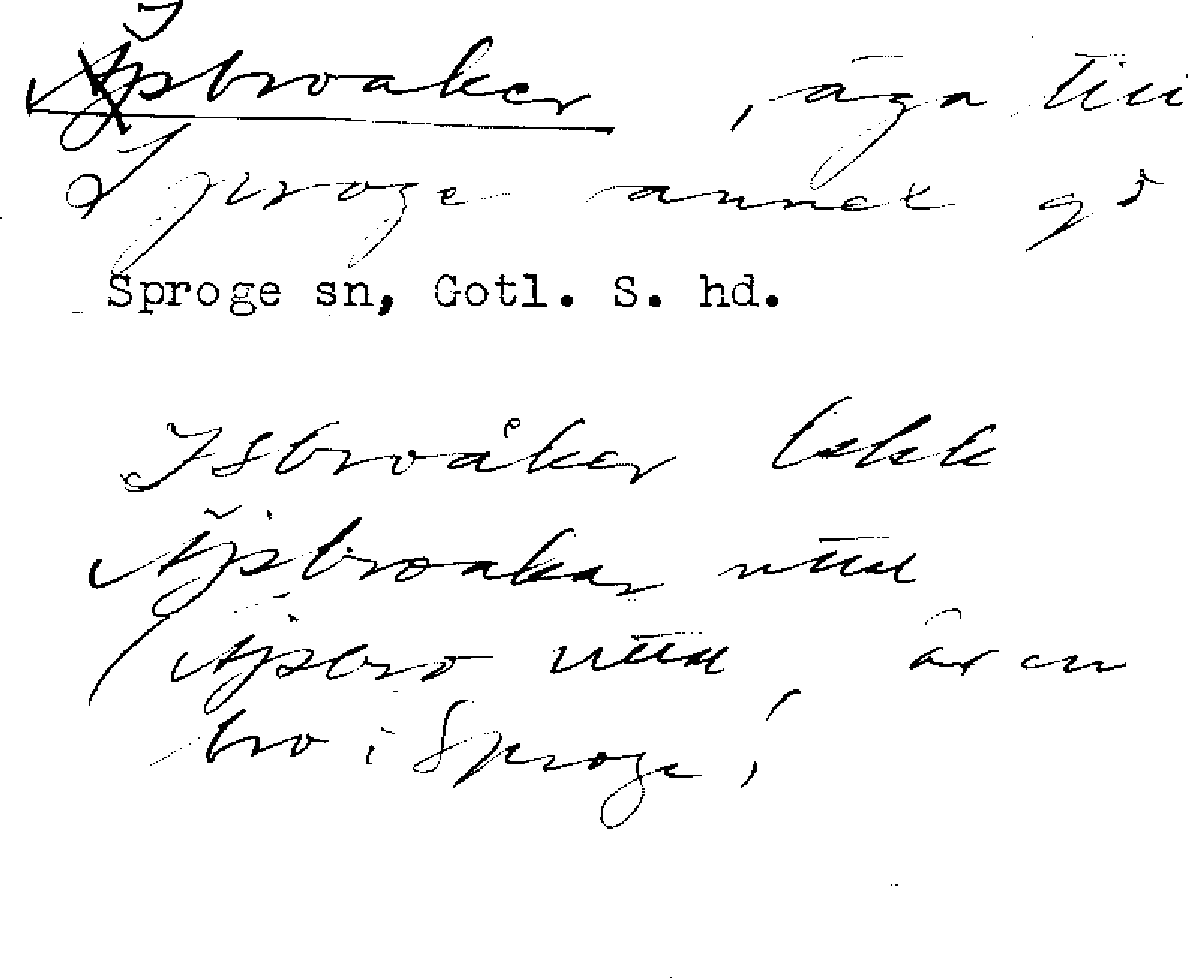 Äjsbroaker, äga till
Sproge annex gd
Sproge sn, Gotl. S. hd.
Isbroåker
Äjsbroakar uttal
(Äjsbro uttal är en
bro i Sproge)